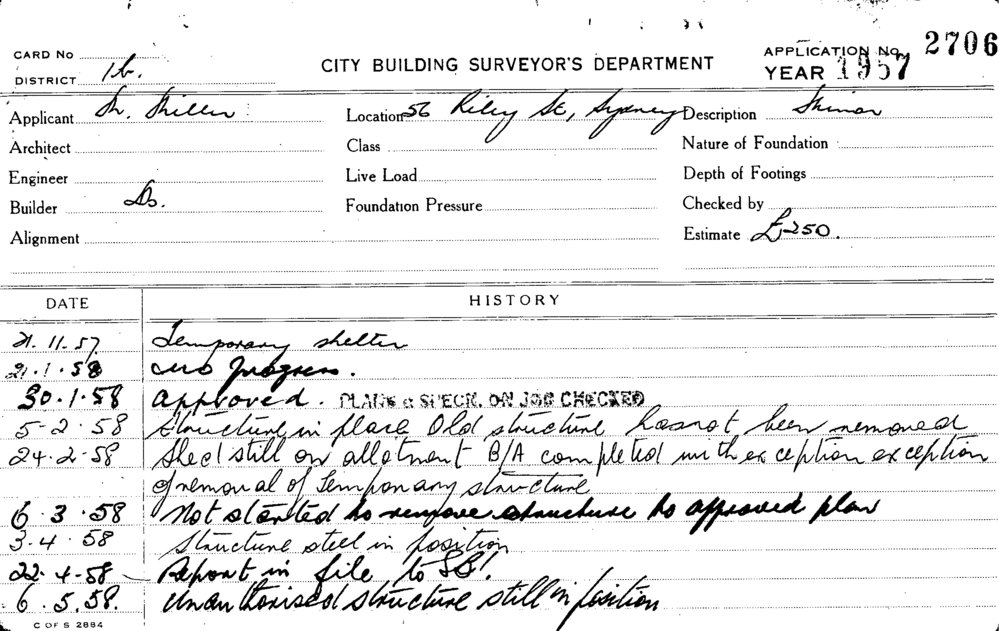 CARD No
DISTRICT 1b.
CITY BUILDING SURVEYOR'S DEPARTMENT
APPLICATION No. 2706
YEAR 1957
Applicant Miller
Location 56 Riley St, Sydney
Description Minor
Architect
Class
Nature of Foundation
Engineer
Live Load
Depth of Footings
Builder Do.
Foundation Pressure
Checked by
Alignment
Estimate £250.
DATE HISTORY
21.11.57 Temporary shelter
21.1.58 no progress.
30.1.58 approved. PLANS & SPECN. ON JOB CHECKED
5-2.58 Structure in place Old structure has not been removed
24.2.58 Shed still on allotment B/A completed with exception exception
of removal of temporary structure
6.3.58 Not started to remove structure to approved plan
3-4.58 Structure still in position
22.4-58 Report in file to
6.5.58. Unauthorised structure still in position
C OF S 2884